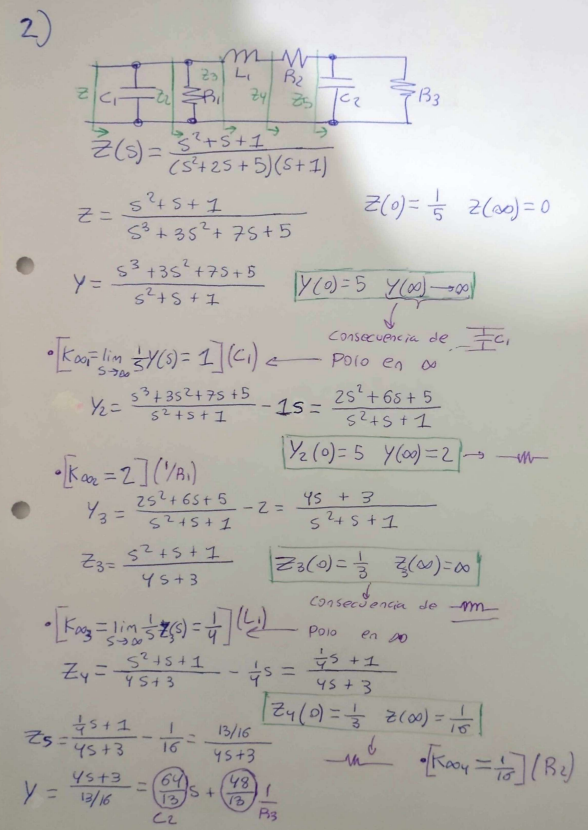 2)
Z C₁ Z₂ R₁ Z₃ L₁ Z₄ R₂ Z₅ C₂ R₃
Z(s) = (s²+s+1)/((s²+2s+5)(s+1))
Z = (s²+s+1)/(s³+3s²+7s+5) Z(0)=1/5 Z(∞)=0
Y = (s³+3s²+7s+5)/(s²+s+1) Y(0)=5 Y(∞)→∞
Consecuencia de C₁
•[K∞₁=lim s→∞ 1/s Y(s) = 1](C₁) ← Polo en ∞
Y₂ = (s³+3s²+7s+5)/(s²+s+1) - 1s = (2s²+6s+5)/(s²+s+1)
Y₂(0)=5 Y(∞)=2 →
•[K∞₂=2](1/R₁)
Y₃ = (2s²+6s+5)/(s²+s+1) - 2 = (4s+3)/(s²+s+1)
Z₃ = (s²+s+1)/(4s+3) Z₃(0)=1/3 Z₃(∞)=∞
Consecuencia de
•[K∞₃=lim s→∞ 1/s Z₃(s) = 1/4](L₁) ← Polo en ∞
Z₄ = (s²+s+1)/(4s+3) - 1/4 s = (1/4 s+1)/(4s+3)
Z₄(0)=1/3 Z(∞)=1/16
Z₅ = (1/4 s+1)/(4s+3) - 1/16 = (13/16)/(4s+3) •[K∞₄=1/16](R₂)
Y = (4s+3)/(13/16) = 64/13 s + 48/13
C₂ 1/R₃